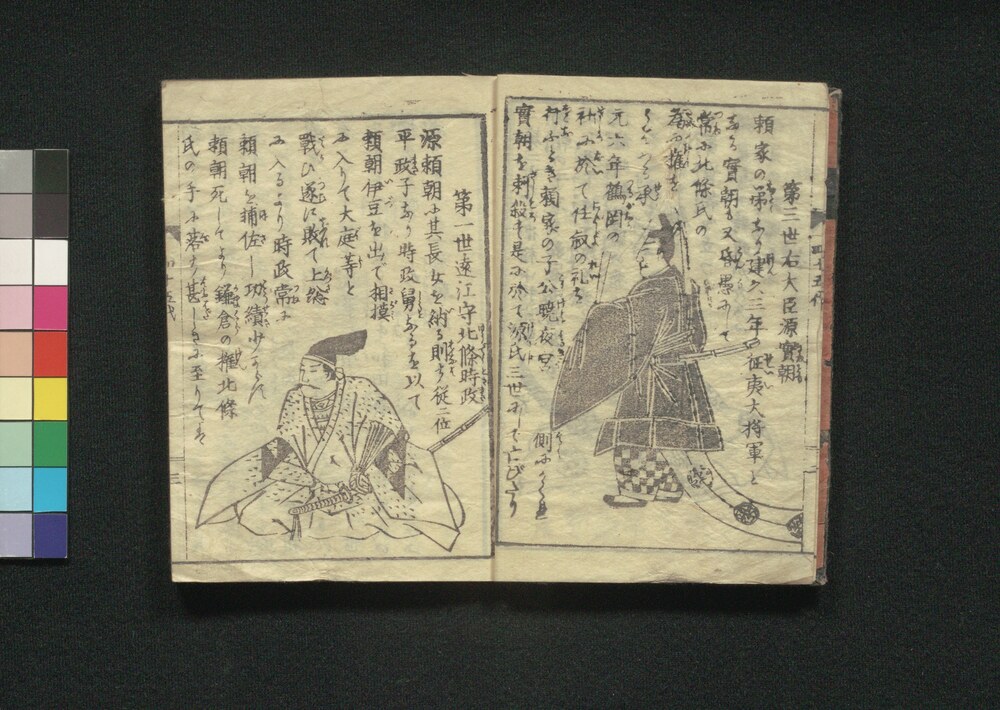 第三世右大臣源實朝
頼家の弟なり建久三年征夷大将軍と
なる實朝も又
常に北條氏の
為に権を
元六年鶴岡の
社に於て任叙の礼を
行ふとき頼家の子公暁夜
側に
實朝を刺殺す是に於て源氏三世にして亡びたり
第一世遠江守北條時政
源頼朝に其長女を納る則ち従二位
平政子なり時政舅たるを以て
頼朝伊豆を出て相摸
に入りて大庭等と
戦ひ遂に敗て上総
に入るより時政常に
頼朝を補佐し功績少からに
頼朝死してより鎌倉の権北條
氏の手に落ち甚しきに至りては